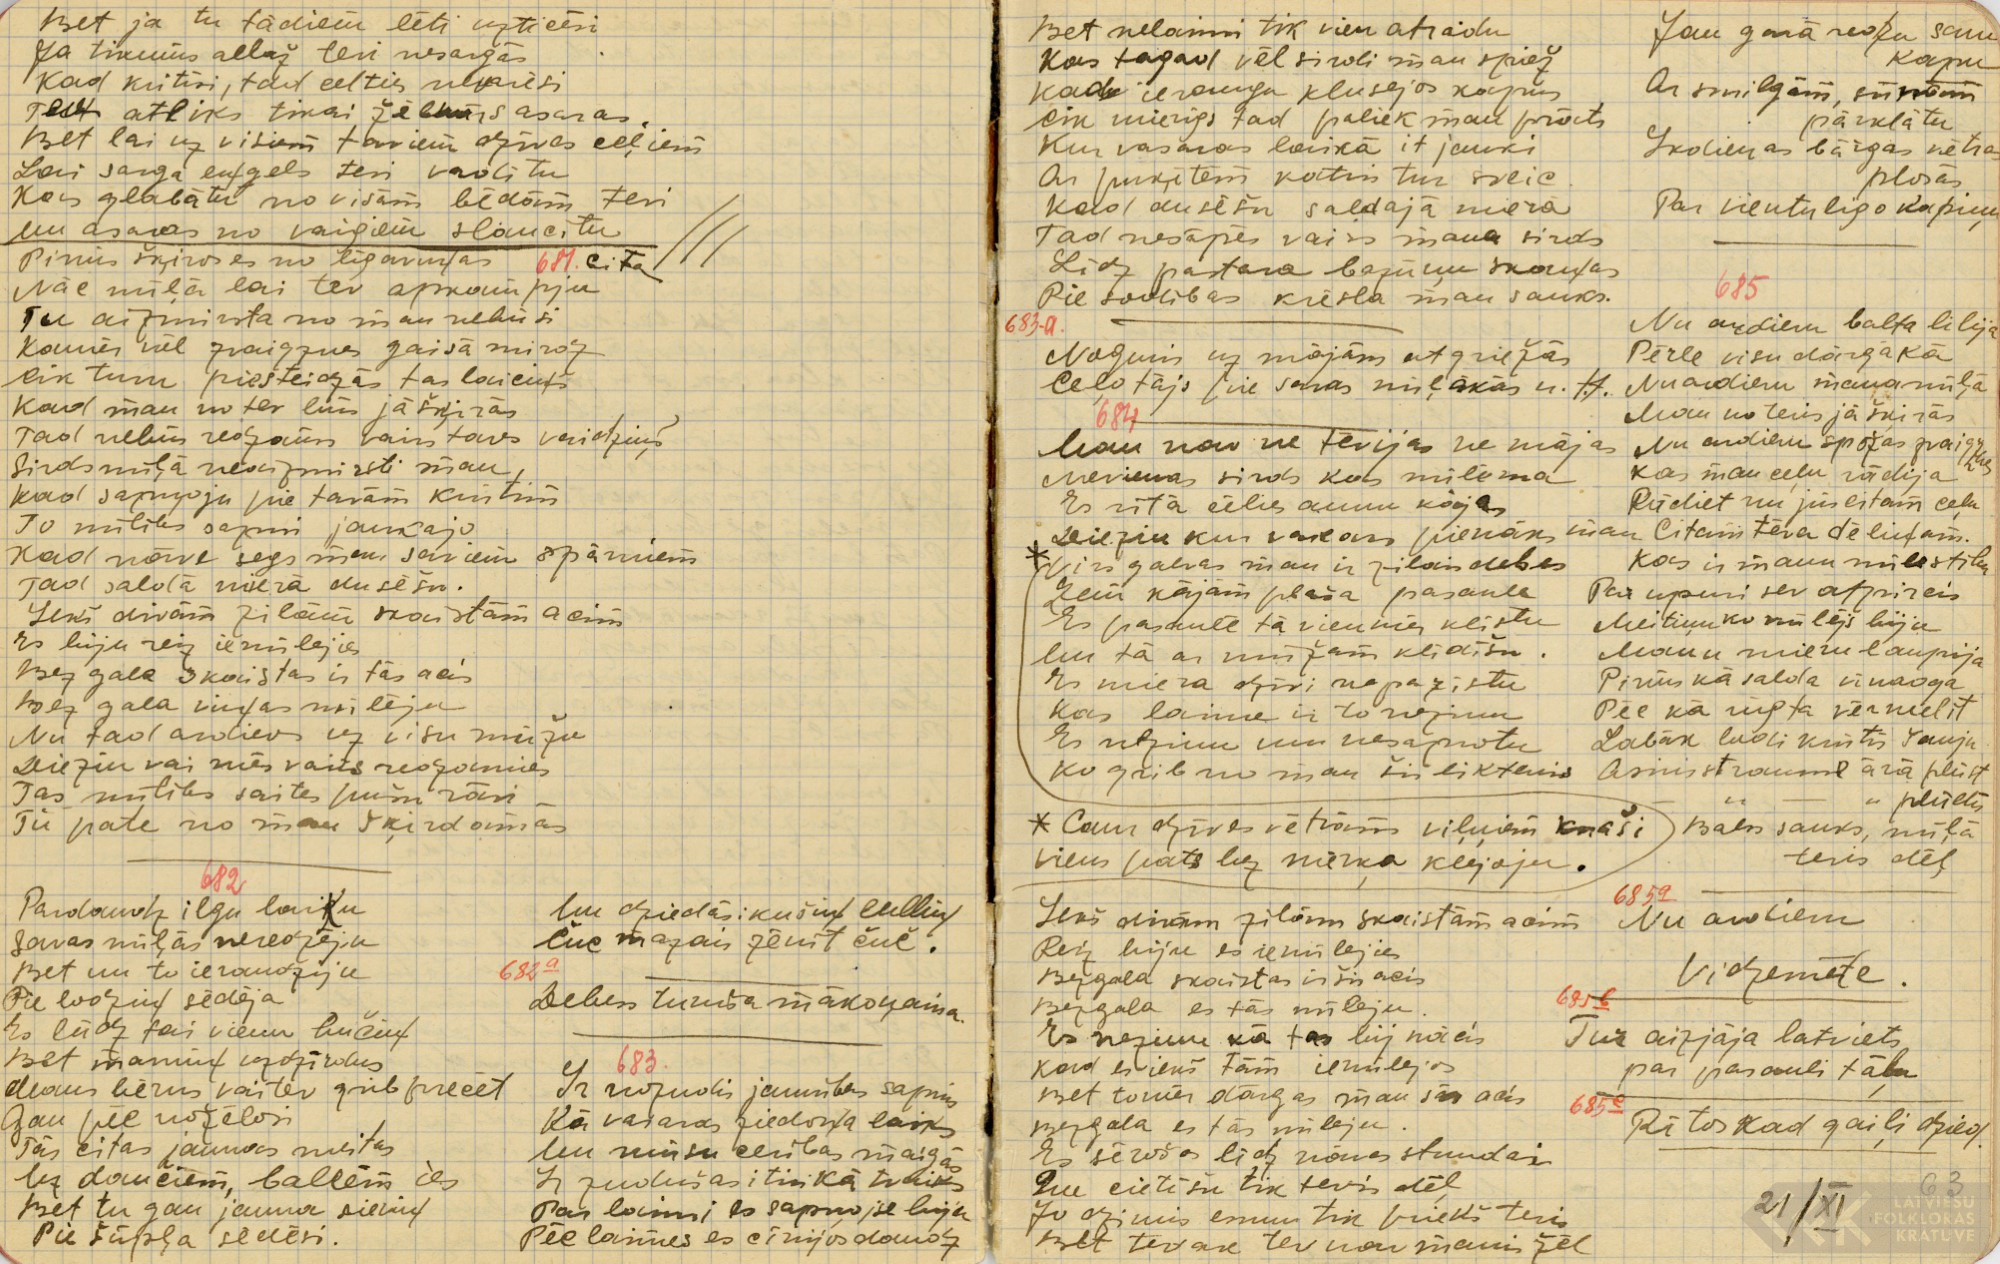 Bet ja tu tādiem lēti uzticēsi
Ja tikums allaž tevi nesargās
Kad kritīsi, tad celties nevarēsi
Tad atliks tikai žēluma asaras.
Bet lai uz visiem taviem dzīves ceļiem
Lai sarga eņģels tevi vadītu
Kas glabātu no visām bēdām tevi
un asaras no vaigiem slaucītu
Pirms šķiros es no līgaviņas 681. cita
Nāc mīļā lai tev apkampju
Tu aizmirsta no man nebūsi
Kamēr vēl zvaigznes gaisā mirdz
Cik tuvu piesteidzās tas laiciņš
Kad man no tev būs jāšķirās
Tad nebūs redzams vairs tavs vaidziņš
Sirds mīļā neaizmirsti man,
Kad sapņoju pie tavām krūtīm
To mīlības sapni jaukajo
Kad nāve segs man saviem spārniem
Tad saldā mierā dusēšu.
Iekš divām zilām skaistām acīm
Es biju reiz iemīlējies
Bez gala skaistas ir tās acis
Bez gala viņas mīlēju
Nu tad ardievs uz visu mūžu
Diezin vai mēs vairs redzamies
Tās mīlības saites pušu rāvi
Tu pate no man šķirdamās
682
Pardaudz ilgu laiku
Savas mīļās neredzēju
Bet nu to ieraudzīju
Pie lodziņ sēdēja
Es lūdz tai vienu bučiņ
Bet māmiņ uzdzirdus
Mans bērns vai tev grib precēt
Gan pēc nožēlosi
Tās citas jaunas meitas
Uz dančiem, ballēm ies
Bet tu gan jauna sieviņ
Pie šūpļa sēdēsi.
Un dziedāsi kušiņ lulliņ
Čuč mazais zēnīt čuč.
682a
Debess tumša mākoņaina.
683.
Ir nozudis jaunības sapnis
Kā vasaras ziedoņa laiks
Un mūsu cerības maigās
Ir zudušas itin kā tvaiks
Par laimi es sapņojse biju
Pēc laimes es cīnijos daudz
Bet nelaimi tik vien atradu
Kas tagad vēl sirdi man spiež
Kad ieraugu klusējos kapus
Cik mierīgs tad paliek man prāts
Kur vasaras laikā it jauki
Ar puķitēm katris tur sveic
Kad dusēšu saldajā mierā
Tad nesāpēs vairs mana sirds
Līdz pastara bazūņu skaņas
Pie sodības krēsla man sauks.
683-a.
Noguris uz mājām atgriežās
Ceļotājs pie savas mīļākās u. tt.
684
Man nav ne tēvijas ne mājas
Nevienas sirds kas mīl mana
Es rītā cēlies aunu kājas
Diezin kur vakars pienāks man
* Virs galvas man ir zilais debes
Zem kājām plaša pasaule
Es pasaulē tā vienmēr klīstu
Un tā ar mūžam klīdīšu.
Es miera dzīvi nepazīstu
Kas laime ir to nezinu
Es nezinu un nesaprotu
Ko grib no man šis liktenis
* Caur dzīves vētrām viļņiem krāši
viens pats bez mērķa klejoju.
Iekš divām zilām skaistām acīm
Reiz biju es iemīlejies
Bezgala skaistas ir šīs acis
Bezgala es tās mīleju.
Es nezinu kā tas bij nācis
Kad es iekš tām iemīlejos
Bet tomēr dārgas man šīs acis
Bezgala es tās mīleju.
Es sērošos līdz nāves stundai
Un cietīšu tik tevis dēļ
Jo dzimis esmu tik priekš tevis
Bet tevak tev nav manis žēl
Jau garā redzu savu
kapu
Ar smilgām, sūnām
pārklātu
Ikdienas bārgas vētras
plosās
Par vientuļīgo kapiņu
685
Nu ardievu balta lilija
Pērle visu dārgākā
Nu ardievu mana mīļā
Man no tevis jāšķirās
Nu ardievu spožas zvaigznes
Kas man ceļu rādija
Rādiet nu jūs citam ceļu
Citam tēva dēliņam.
Kas ir manu mīlestību
Par upuri sev atpircis
Meitiņu ko mīlējs biju
Man u mieru laupija
Pirms kā salda vīnaoga
Pēc kā rūgta vērmelīt
Labāk lodi krūtīs šauju
Asins straume ārā plūst
— " — " plūdīs
Balss sauks, mīļā
tevis dēļ
685a
Nu ardievu
Vidzemīte.
685b
Tur aizjāja latviets
par pasauli tālu
685c
Rītos kad gaiļi dzied.
63
21/XI
LATVIEŠU
FOLKLORAS
KRĀTUVE